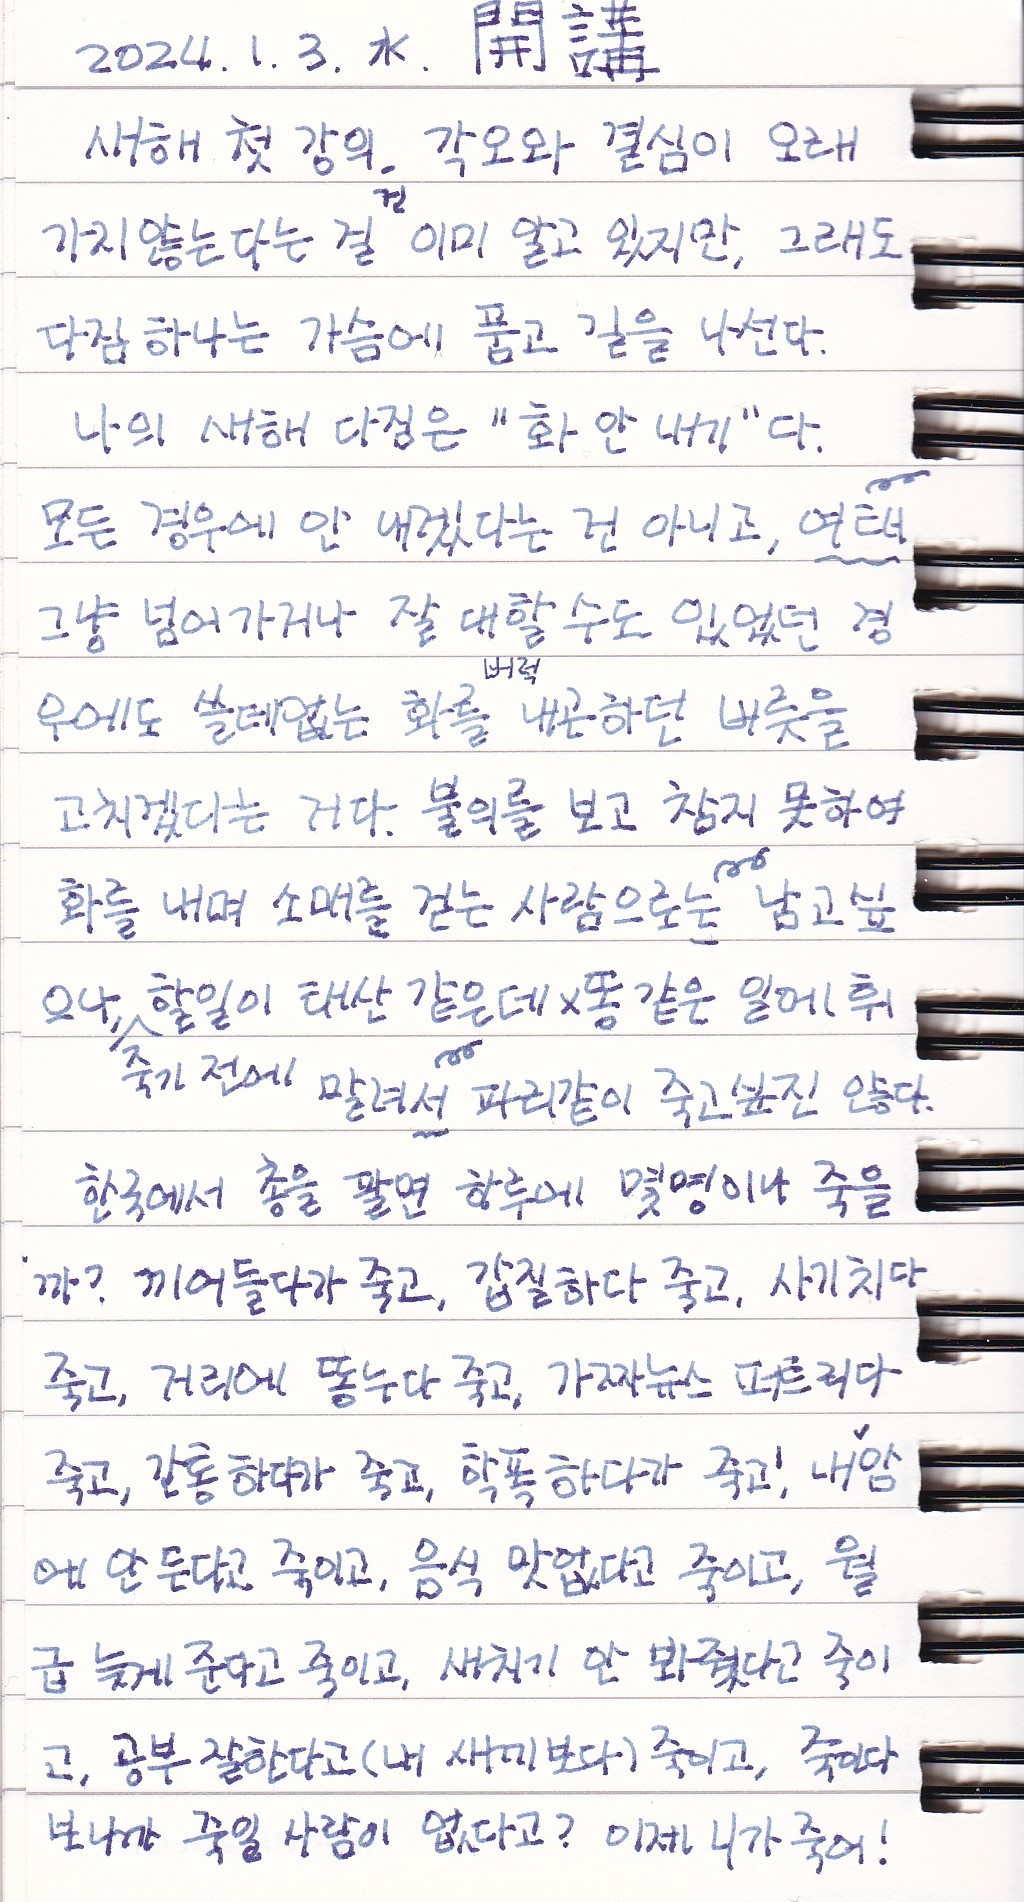 2024. 1. 3. 水. 開講
새해 첫 강의. 각오와 결심이 오래
건
가지 않는다는 걸 이미 알고 있지만, 그래도
다짐 하나는 가슴에 품고 길을 나선다.
나의 새해 다짐은 "화 안 내기"다.
모든 경우에 안 내겠다는 건 아니고, 여태
그냥 넘어가거나 잘 대할 수도 있었던 경
버럭
우에도 쓸데없는 화를 내곤하던 버릇을
고치겠다는 거다. 불의를 보고 참지 못하여
화를 내며 소매를 걷는 사람으로는 남고싶
으나, 할일이 태산 같은데 똥 같은 일에 휘
죽기 전에
말려서 파리같이 죽고싶진 않다.
한국에서 총을 팔면 하루에 몇명이나 죽을
까? 끼어들다가 죽고, 갑질하다 죽고, 사기치다
죽고, 거리에 똥누다 죽고, 가짜뉴스 퍼트리다
죽고, 간통하다가 죽고, 학폭하다가 죽고! 내 앞
에 안 든다고 죽이고, 음식 맛없다고 죽이고, 월
급 늦게 준다고 죽이고, 새치기 안 봐줬다고 죽이
고, 공부 잘한다고(내 새끼보다) 죽이고, 죽이다
보니까 죽일 사람이 없다고? 이제 니가 죽어!